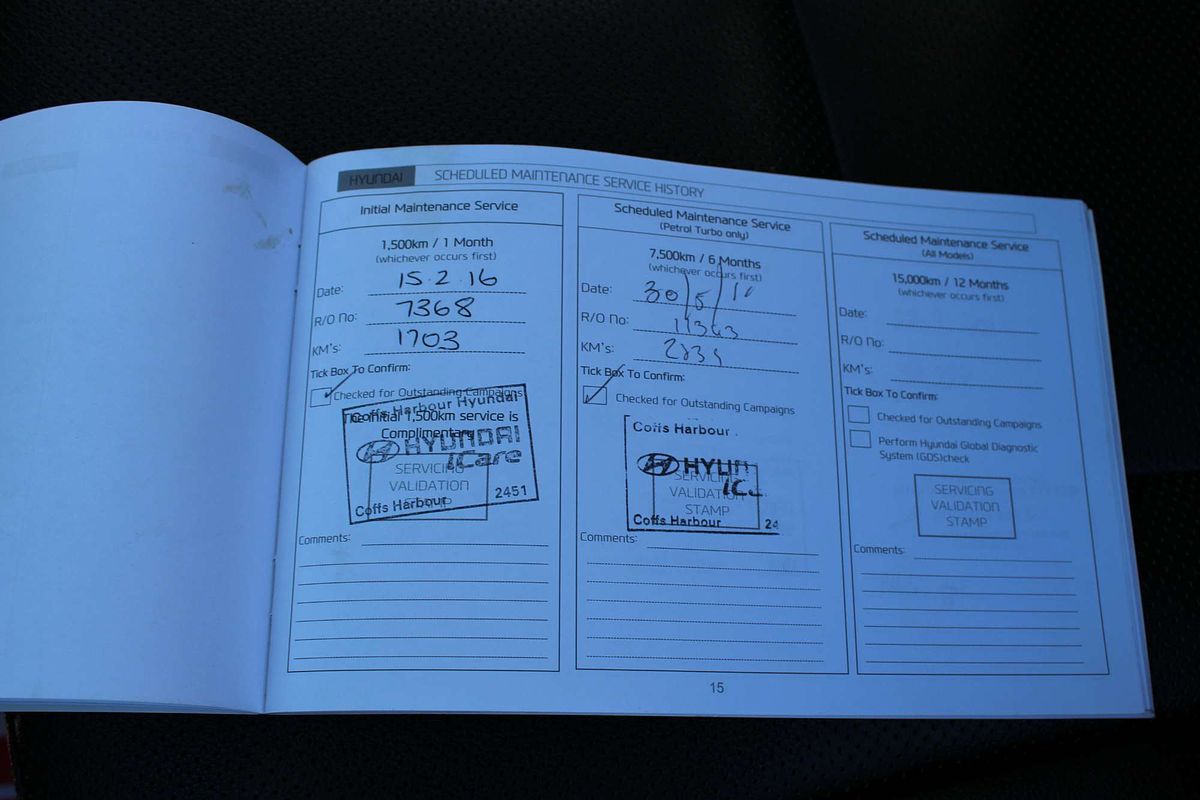 HYUNDAI SCHEDULED MAINTENANCE SERVICE HISTORY
Initial Maintenance Service
1,500km / 1 Month
(whichever occurs first)
Date: 15.2.16
R/O No: 7368
KM's: 1703
Tick Box To Confirm:
Checked for Outstanding Campaigns
Coffs Harbour Hyundai
The initial 1,500km service is
Complimentary
HYUNDAI
iCare
SERVICING
VALIDATION
STAMP
Coffs Harbour 2451
Comments:
Scheduled Maintenance Service
(Petrol Turbo only)
7,500km / 6 Months
(whichever occurs first)
Date: 30/5/16
R/O No: 11363
KM's:
Tick Box To Confirm:
Checked for Outstanding Campaigns
Coffs Harbour
SERVICING
VALIDATION
STAMP
Coffs Harbour
Comments:
Scheduled Maintenance Service
(All Models)
15,000km / 12 Months
(whichever occurs first)
Date:
R/O No:
KM's:
Tick Box To Confirm:
Checked for Outstanding Campaigns
Perform Hyundai Global Diagnostic
System (GDS)check
SERVICING
VALIDATION
STAMP
Comments:
15